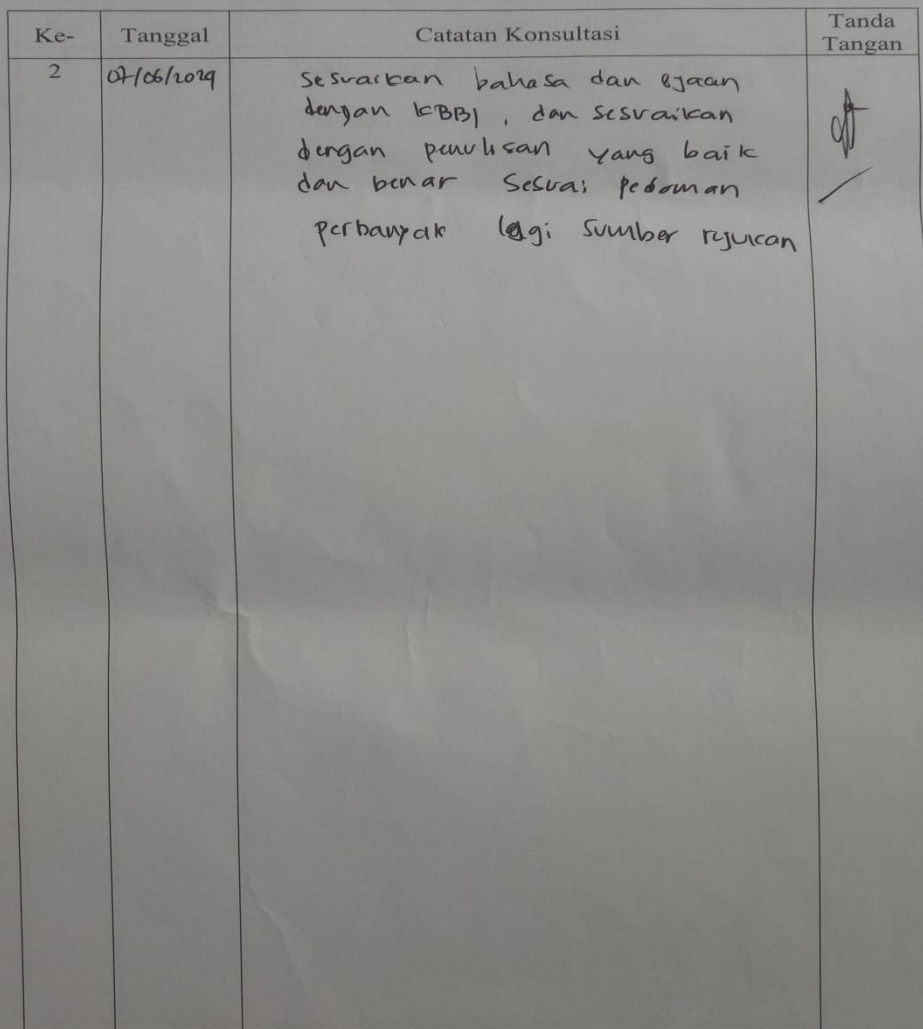 Ke- Tanggal Catatan Konsultasi Tanda Tangan
2 07/06/2024 Sesuaikan bahasa dan ejaan
dengan KBBI, dan sesuaikan
dengan penulisan yang baik
dan benar Sesuai pedoman
perbanyak lagi sumber rujukan